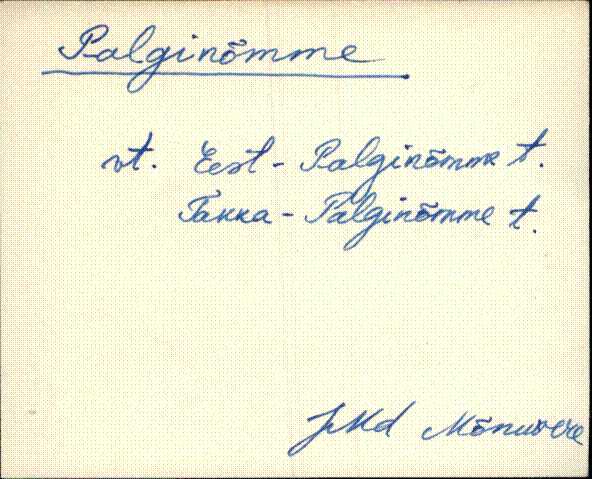 Palginõmme
vt. Eest-Palginõmme t.
Takka-Palginõmme t.
JMd Mõnuvere